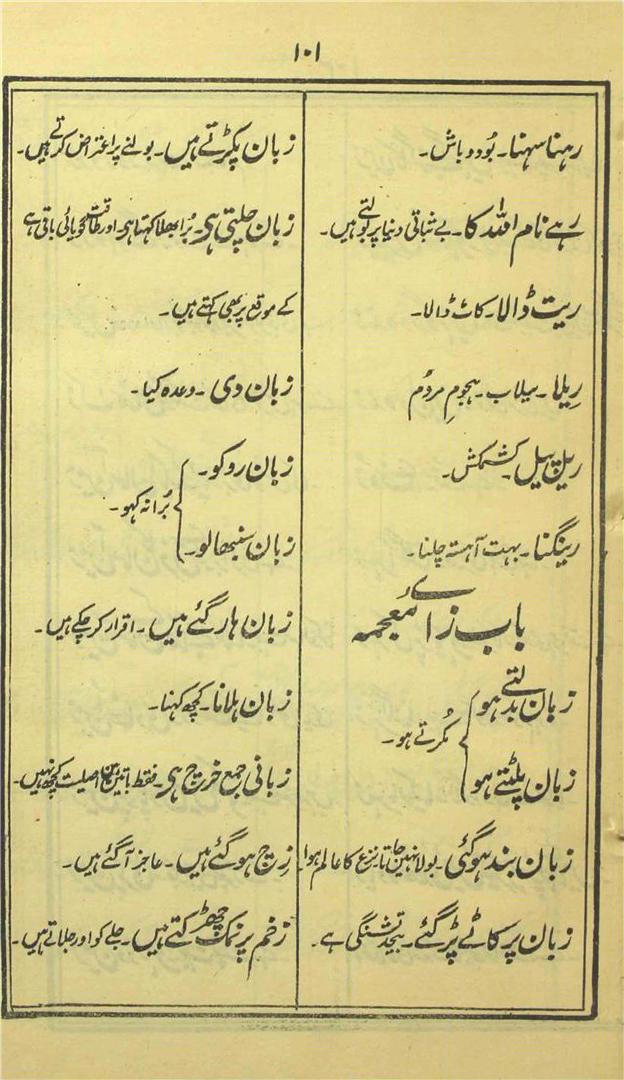 ۱۰۱
رہنا سہنا۔ بُود و باش۔
رہے نام اللہ کا۔ بے ثباتی دنیا پر بولتے ہیں۔
ریت ڈالا۔ کاٹ ڈالا۔
رِیلا۔ سیلاب۔ ہجومِ مردُم
ریل پیل۔ کشمکش۔
رینگنا۔ بہت آہستہ چلنا۔
باب زائے معجمہ
زبان بدلتے ہو
مُکرتے ہو۔
زبان پلٹتے ہو
زبان بند ہوگئی۔ بولا نہیں جاتا۔ نزع کا عالم ہوا۔
زبان پر کانٹے پڑ گئے۔ بیحد تشنگی ہے۔
زبان پکڑتے ہیں۔ بولنے پر اعتراض کرتے ہیں۔
زبان چلتی ہی۔ بُرا بھلا کہتا ہی۔ اور طاقت گویائی باقی ہے
کے موقع پر بھی کہتے ہیں۔
زبان دی۔ وعدہ کیا۔
زبان روکو۔
بُرا نہ کہو۔
زبان سنبھالو۔
زبان ہار گئے ہیں۔ اقرار کر چکے ہیں۔
زبان ہلانا۔ کچھ کہنا۔
زبانی جمع خرچ ہی۔ فقط باتیں ہیں اصلیت کچھ نہیں۔
زِچ ہو گئے ہیں۔ عاجز آ گئے ہیں۔
زخم پر نمک چھڑکتے ہیں۔ جلے کو اور جلاتے ہیں۔